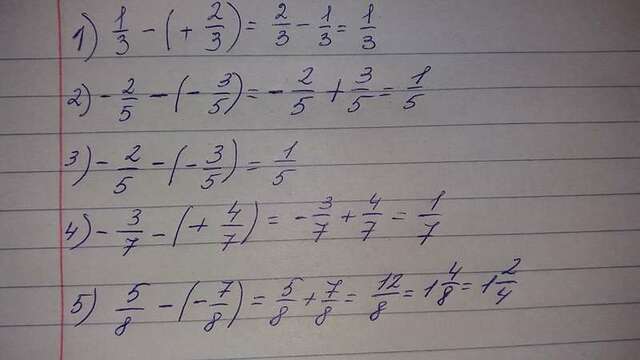 1) 1/3 - (+ 2/3) = 2/3 - 1/3 = 1/3
2) - 2/5 - (- 3/5) = - 2/5 + 3/5 = 1/5
3) - 2/5 - (- 3/5) = 1/5
4) - 3/7 - (+ 4/7) = - 3/7 + 4/7 = 1/7
5) 5/8 - (- 7/8) = 5/8 + 7/8 = 12/8 = 1 4/8 = 1 2/4